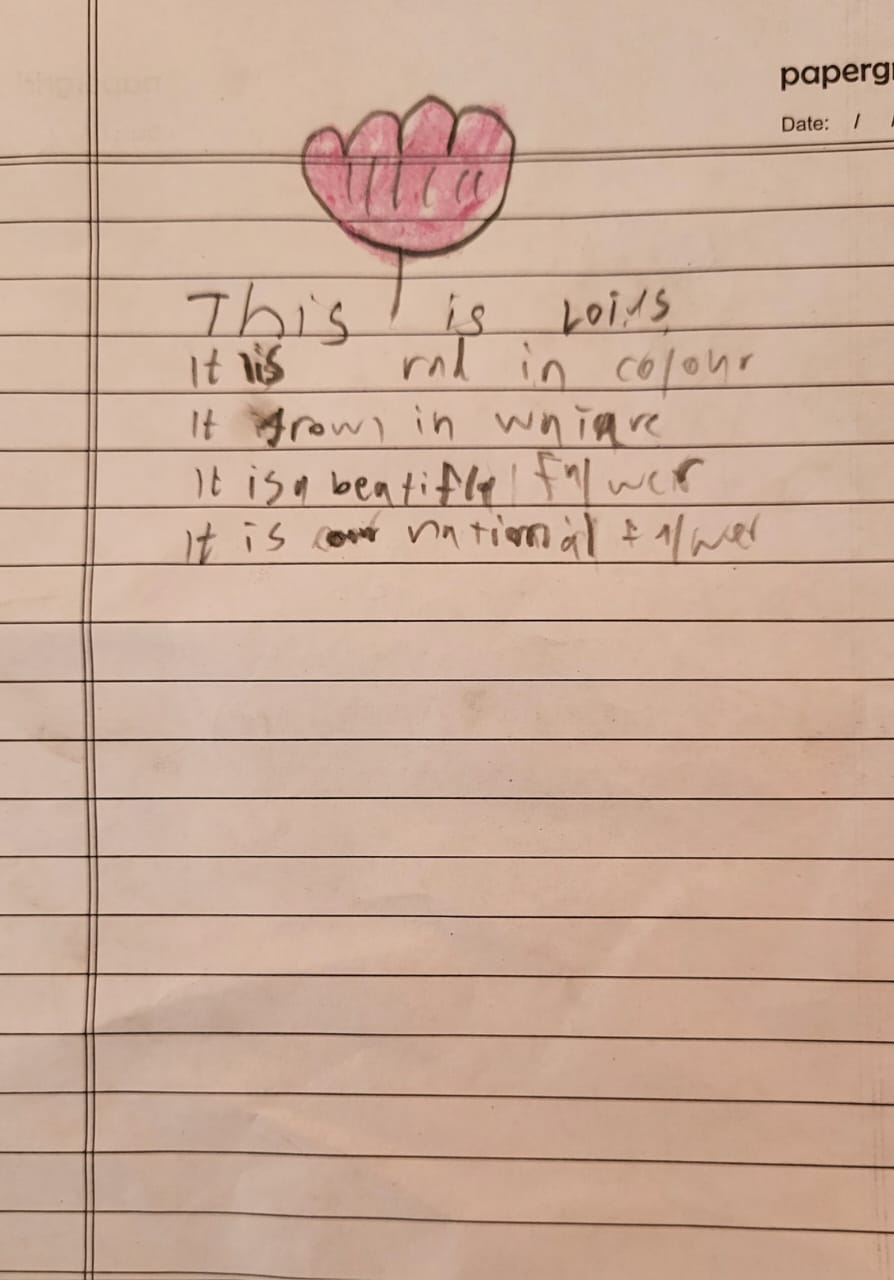 papergr
Date: / /
This is Loits
It is rnd in colour
It grows in wniqre
It is a beatifly fnlwer
It is our national fnlwer